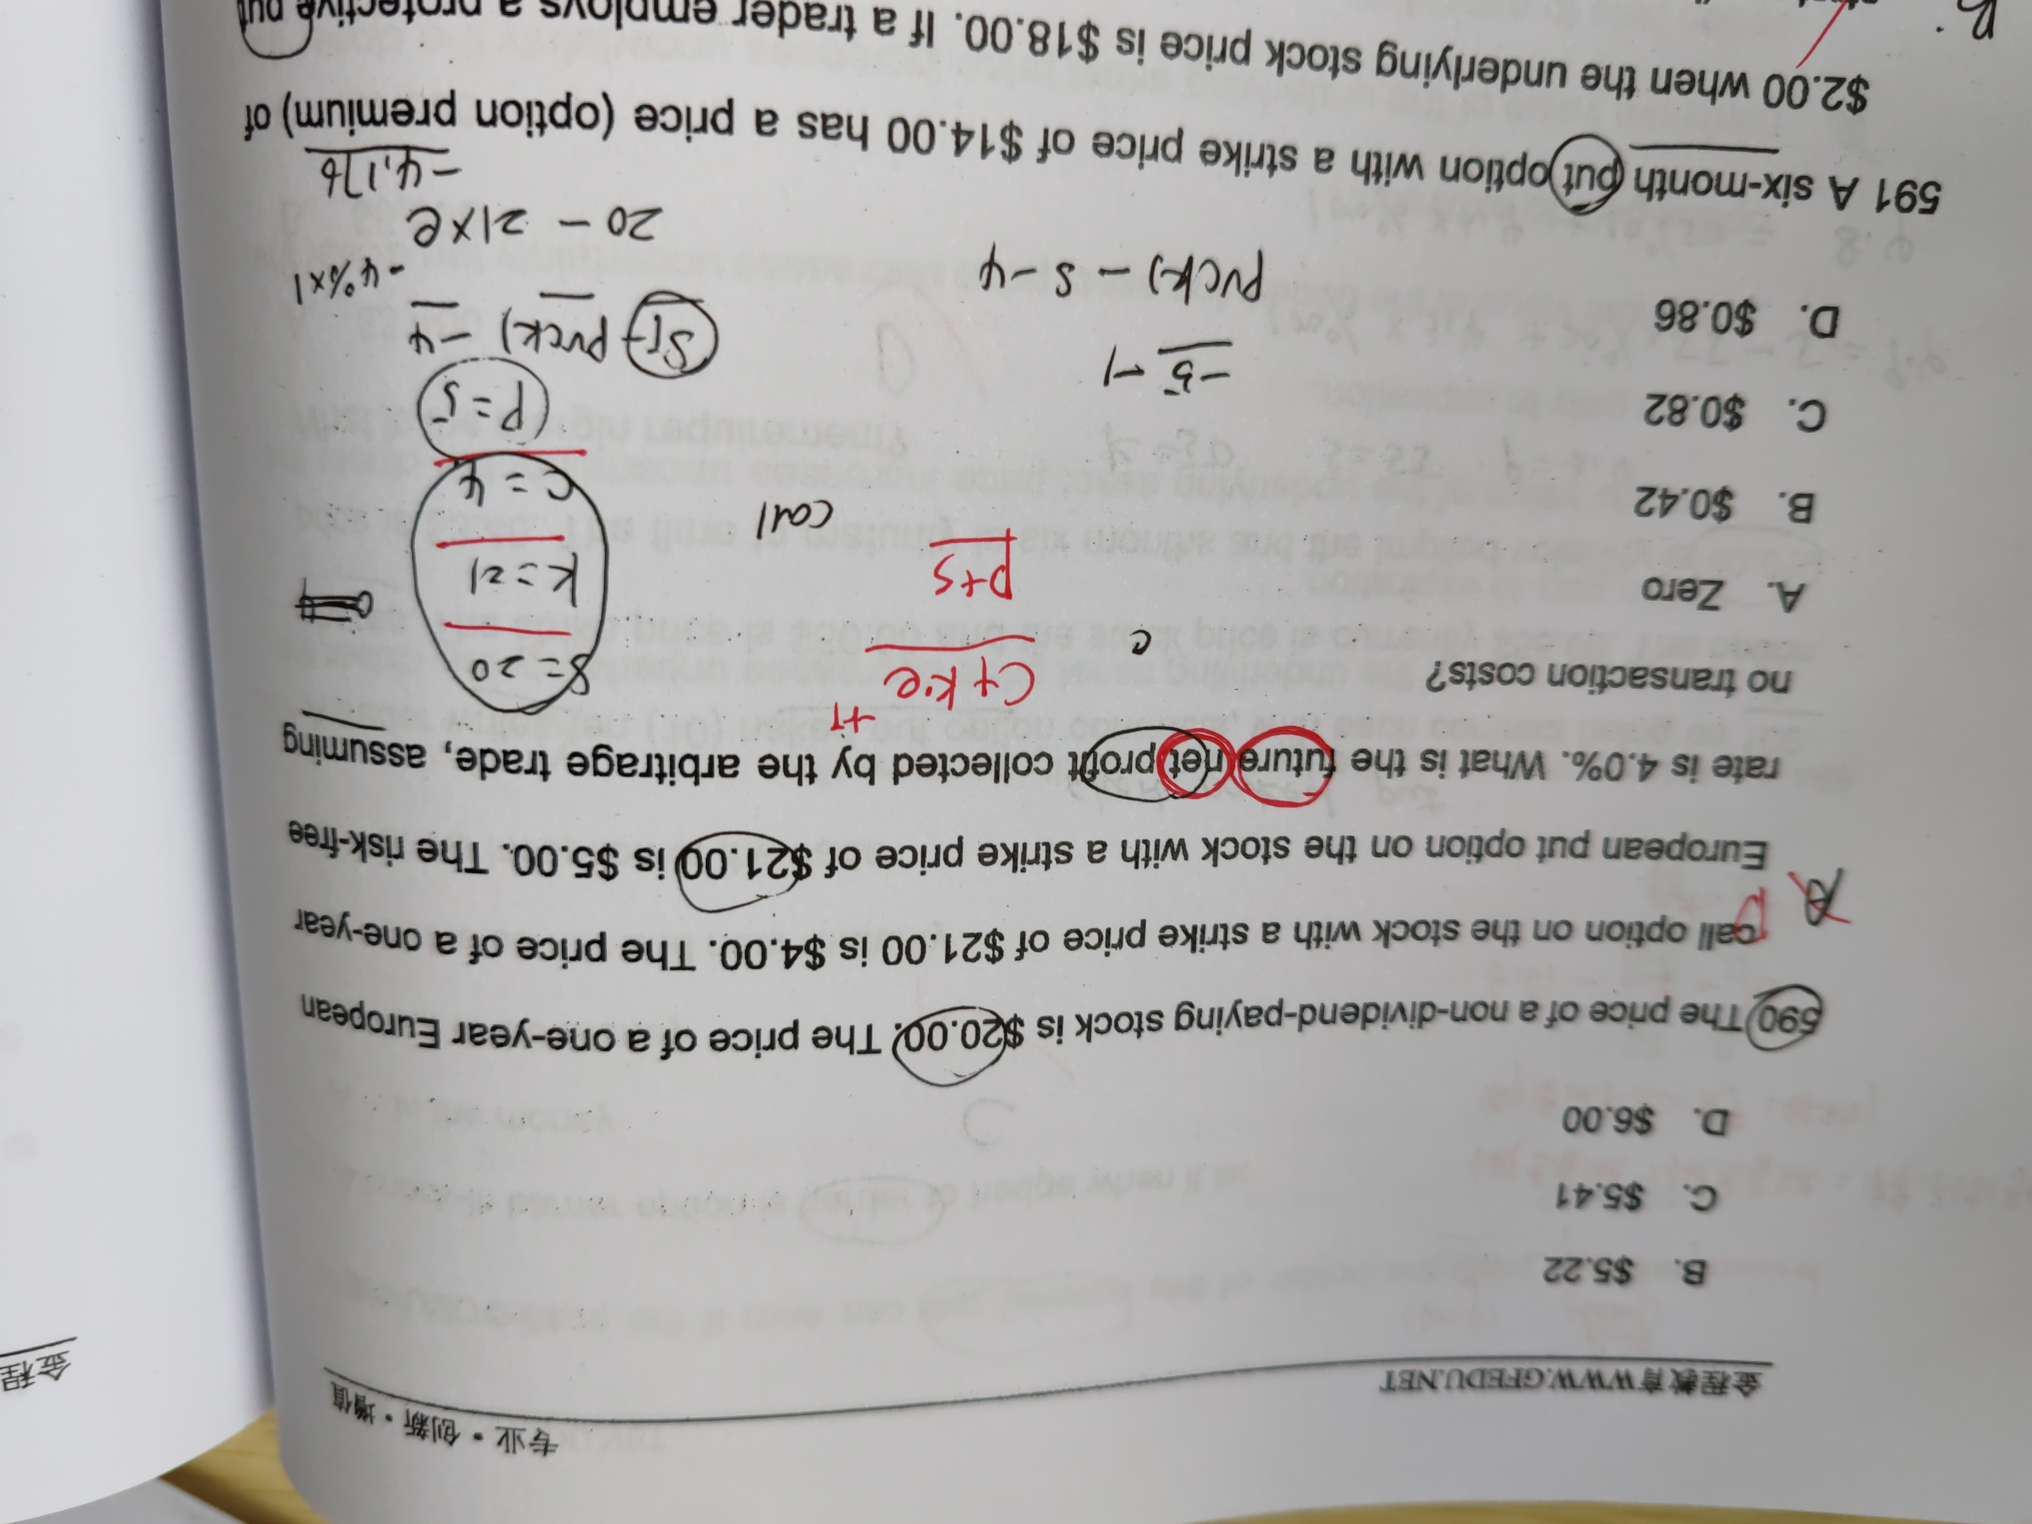 金程教育 WWW.GFEDU.NET
专业·创新·增值
金程
B. $5.22
C. $5.41
D. $6.00
590 The price of a non-dividend-paying stock is $20.00. The price of a one-year European
call option on the stock with a strike price of $21.00 is $4.00. The price of a one-year
European put option on the stock with a strike price of $21.00 is $5.00. The risk-free
rate is 4.0%. What is the future net profit collected by the arbitrage trade, assuming
no transaction costs?
A. Zero
B. $0.42
C. $0.82
D. $0.86
+1
C+k·e
P+S
c
call
S=20
k=21
c=4
P=5
-5-1
PV(k)-S-4
PV(k)-4
-4%×1
20-21×e
-4.176
591 A six-month put option with a strike price of $14.00 has a price (option premium) of
$2.00 when the underlying stock price is $18.00. If a trader employs a protective put